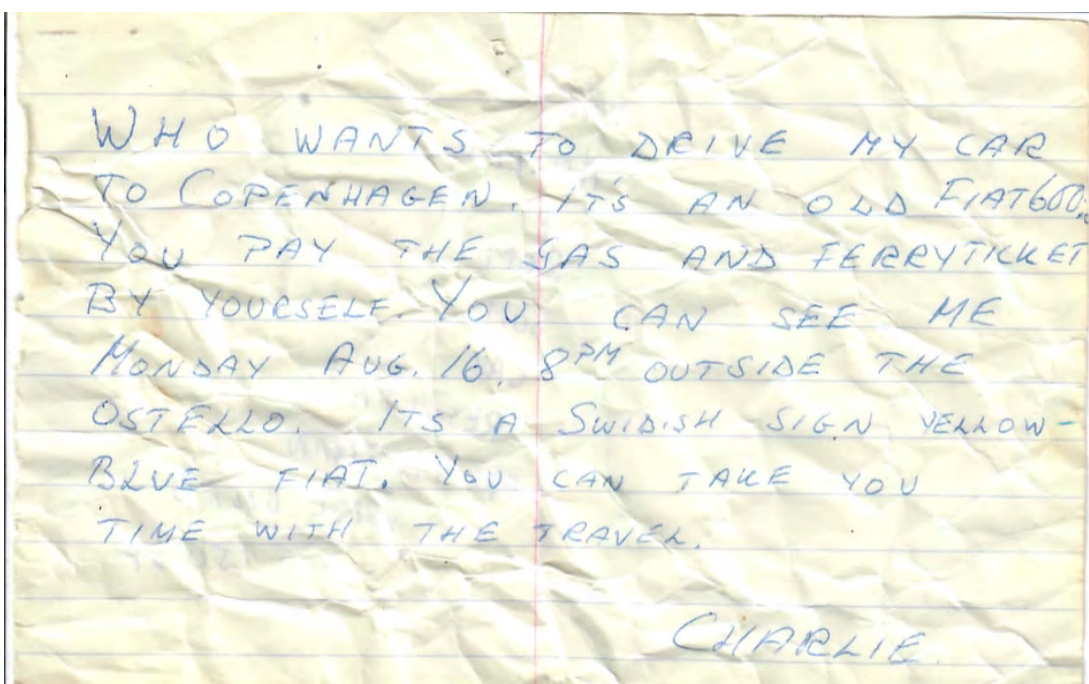 WHO WANTS TO DRIVE MY CAR
TO COPENHAGEN. IT'S AN OLD FIAT600.
YOU PAY THE GAS AND FERRYTICKET
BY YOURSELF. YOU CAN SEE ME
MONDAY AUG. 16. 8PM OUTSIDE THE
OSTELLO. ITS A SWIDISH SIGN YELLOW-
BLUE FIAT. YOU CAN TAKE YOU
TIME WITH THE TRAVEL.
CHARLIE.